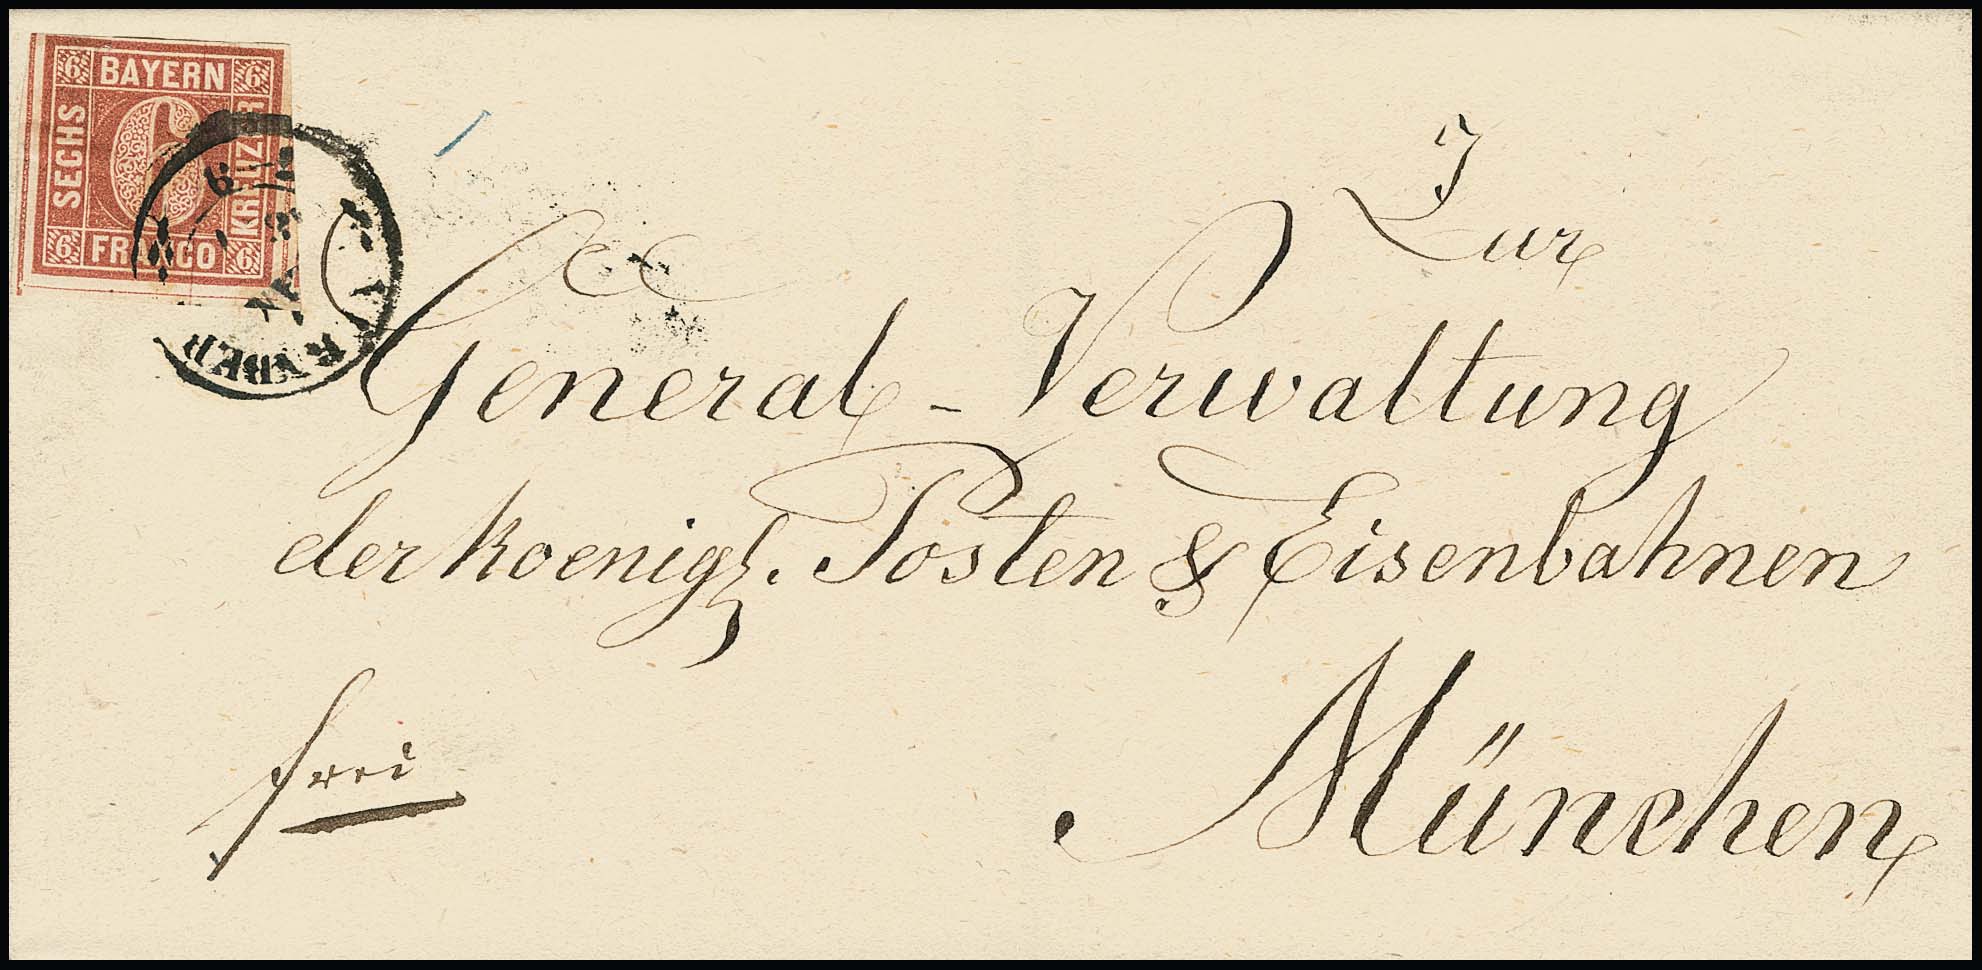 6 BAYERN 6
SECHS
6
KREUZER
6 FRANCO 6
Zur
General-Verwaltung
der koenigl. Posten & Eisenbahnen
München
frei